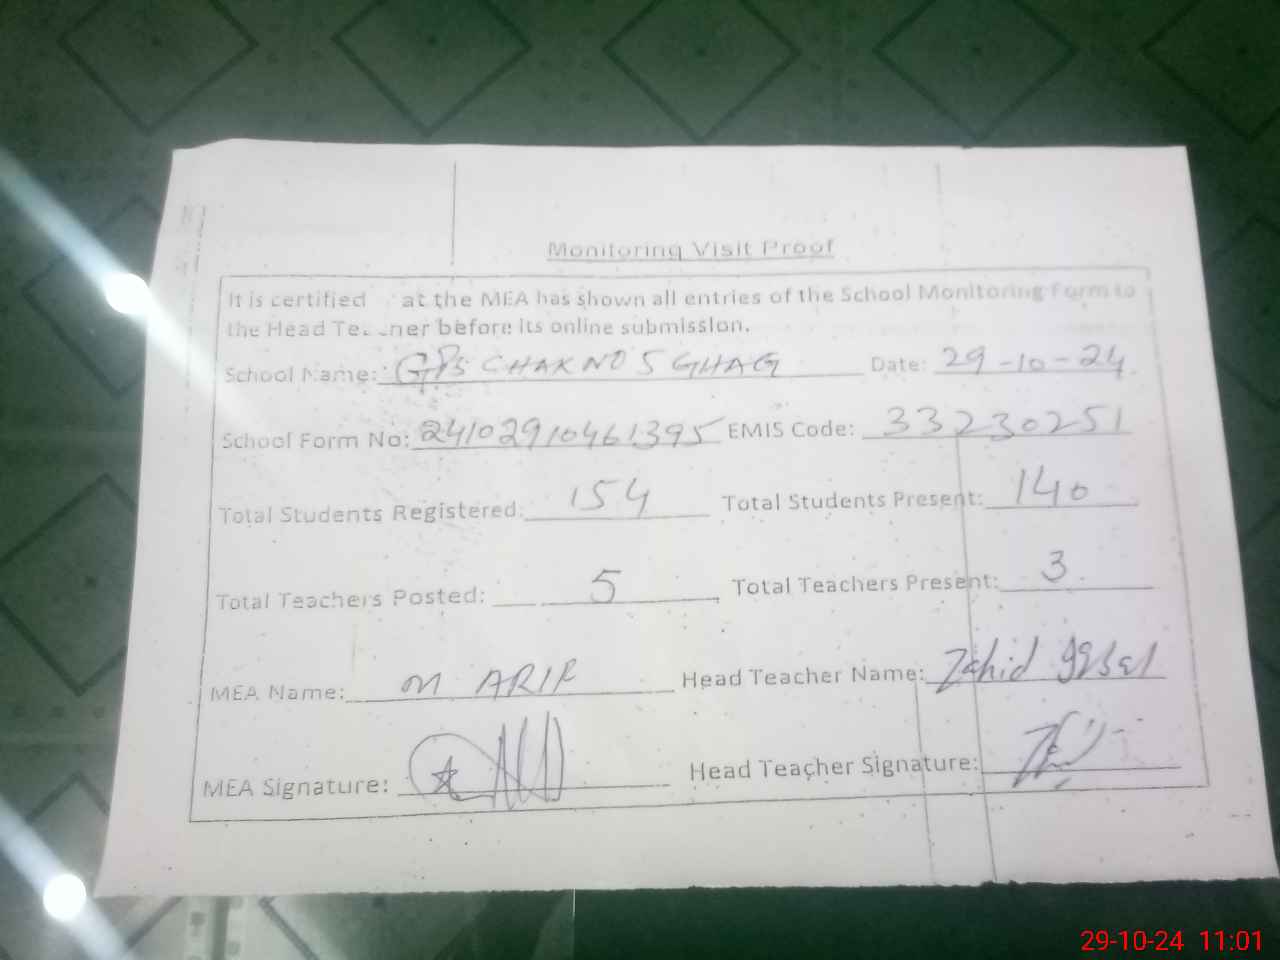 Monitoring Visit Proof
It is certified at the MEA has shown all entries of the School Monitoring Form to
the Head Te ner before its online submission.
School Name: GPS CHAK NO 5 GHAG Date: 29-10-24
School Form No: 24102910461395 EMIS Code: 33230251
Total Students Registered: 154 Total Students Present: 140
Total Teachers Posted: 5 Total Teachers Present: 3
MEA Name: M ARIF Head Teacher Name: Zahid Iqbal
MEA Signature: Head Teacher Signature:
29-10-24 11:01